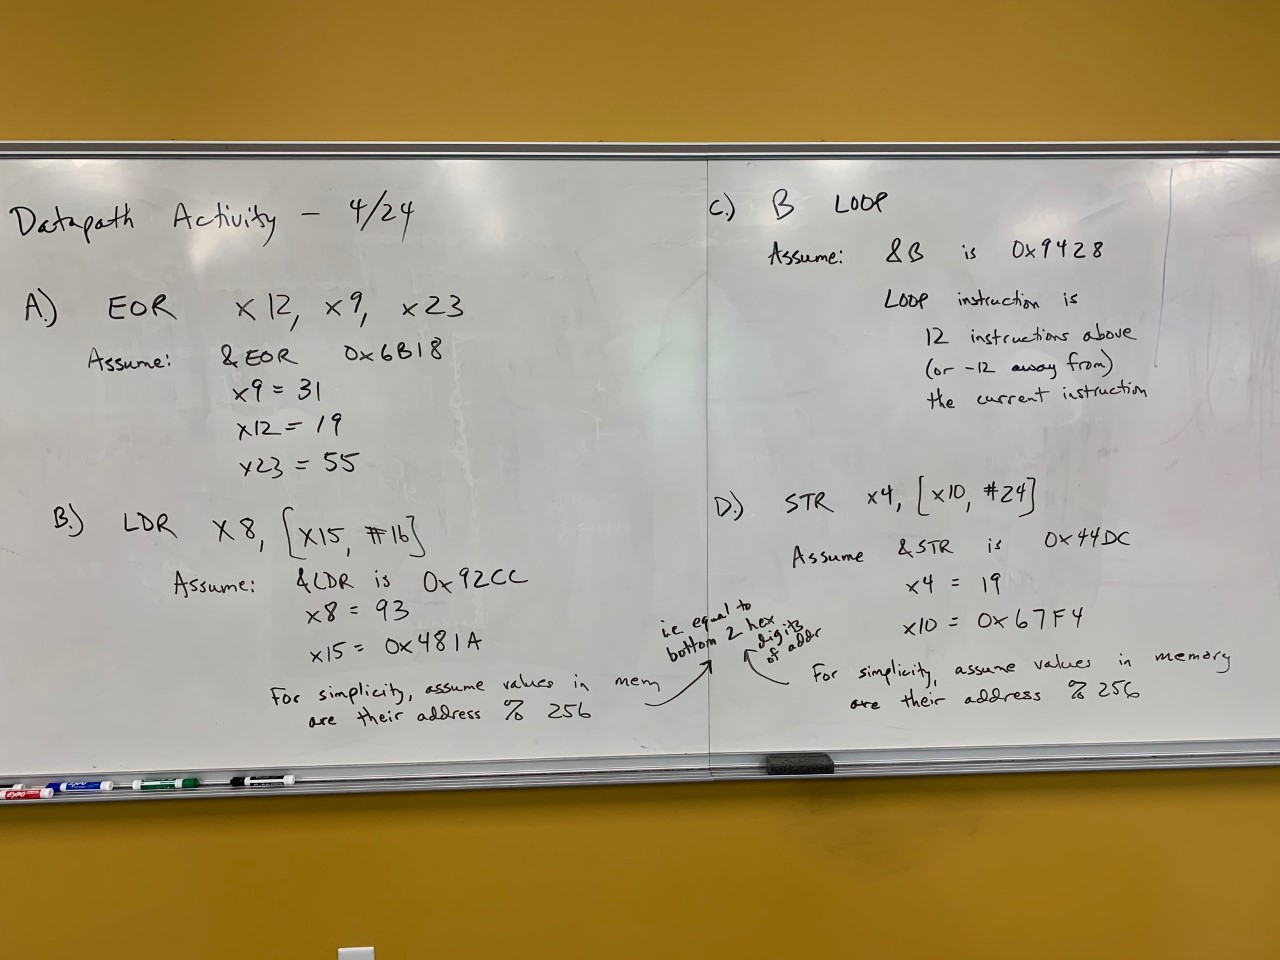 Datapath Activity - 4/24
A.) EOR X12, X9, X23
Assume: &EOR 0x6B18
X9 = 31
X12 = 19
X23 = 55
B.) LDR X8, [X15, #16]
Assume: &LDR is 0x92CC
X8 = 93
X15 = 0x481A
For simplicity, assume values in mem
are their address % 256
i.e. equal to
bottom 2 hex
digits
of addr
C.) B LOOP
Assume: &B is 0x9428
LOOP instruction is
12 instructions above
(or -12 away from)
the current instruction
D.) STR X4, [X10, #24]
Assume &STR is 0x44DC
X4 = 19
X10 = 0x67F4
For simplicity, assume values in memory
are their address % 256